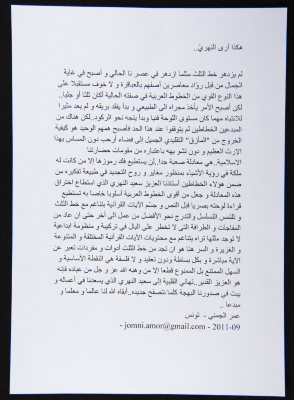 هكذا أرى النهريّ..
لم يزدهر خط الثلث مثلما ازدهر في عصرنا الحالي و أصبح في غاية
الجمال من قبل رؤاد معاصرين أصفهم بالعباقرة و لا خوف مستقبلا على
هذا النوع القوي من الخطوط العربية في صفته الحالية أكان ثلثا أو جليا..
لكن أصبح الأمر يأخذ مجراه الطبيعي و بدأ يفقد بريقه و لم يعد مثيرا
للانتباه مهما كان مستوى اللوحة فنيا وبدأ يتجه نحو الركود.لكن هناك من
المبدعين الخطاطين لم يتوقفوا عند هذا الحد فأصبح همهم الوحيد هو كيفية
الخروج من "المأزق" التقليدي الجميل إلى فضاء أرحب دون المساس بهذا
الارث العظيم و دون تشويهه باعتباره من مقومات حضارتنا
الاسلامية..هي معادلة صعبة جدا..لن يستطيع فك رموزها إلا من كانت له
ملكة في رؤية الأشياء بمنظور مغاير و روح التجديد في طبيعة تفكيره من
ضمن هؤلاء الخطاطين أستاذنا العزيز سعيد النهري الذي استطاع اختراق
هذه المعادلة و جعل من أقوى الخطوط العربية أسلوبا خاصا به تستطيع
قراءة لوحته بصريا قبل النص و جسّم الآيات القرآنية بتناغم مع خط الثلث
و تلتمس التسلسل والتدرج نحو الأفضل من عمل الى آخر حتى ان عاد من
المفاجآت و الطرافة التي لا تخطر على البال في تركيبة و منظومة ابداعية
لا توجد مثلها تراه يتناغم مع محتويات الآيات القرآنية المختلفة و المتنوعة
و الغزيرة و السر هنا هو ان تجد من خط الثلث أدوات و مفردات تعبر عن
الآية مباشرة و بكل بساطة ودون تعقيد و لا فلسفة هي النقطة الأساسية و
السهل الممتنع بل الممنوع قطعا إلا من وهبه الله عز و جل من عباده فإنه
هو العزيز القدير..تهاني القلبية إلى سعيد النهري الذي يسعدنا في أعماله و
يبث في صدورنا البهجة كلما نتصفح جديده..أبقاه الله لنا عالما و معلما و
مبدعا ..
عمر الجمني - تونس
- jomni.amor@gmail.com - 2011-09